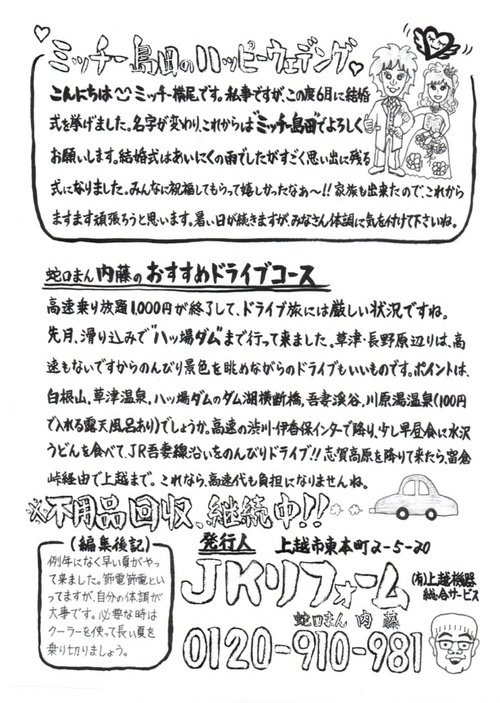 ミッチー島田のハッピーウェデング
こんにちは ミッチー横尾です。私事ですが、この度6月に結婚
式を挙げました。名字が変わり、これからは"ミッチー島田"でよろしく
お願いします。結婚式はあいにくの雨でしたがすごく思い出に残る
式になりました。みんなに祝福してもらって嬉しかったなぁ〜!!家族も出来たので、これから
ますます頑張ろうと思います。暑い日が続きますが、みなさん体調に気を付けて下さいね。
蛇口まん 内藤のおすすめドライブコース
高速乗り放題1,000円が終了して、ドライブ旅には厳しい状況ですね。
先月、滑り込みで"八ッ場ダム"まで行って来ました。草津・長野原辺りは、高
速もないですからのんびり景色を眺めながらのドライブもいいものです。ポイントは、
白根山,草津温泉,八ッ場ダムのダム湖横断橋,吾妻渓谷,川原湯温泉(100円
で入れる露天風呂あり)でしょうか。高速の渋川・伊香保インターで降り、少し早昼食に水沢
うどんを食べて、JR吾妻線沿いをのんびりドライブ!!志賀高原を降りて来たら、富倉
峠経由で上越まで。これなら、高速代も負担になりませんね。
※不用品回収、継続中!!
(編集後記)
例年になく早い夏がやっ
て来ました。節電節電とい
ってますが、自分の体調が
大事です。必要な時は
クーラーを使って長い夏を
乗り切りましょう。
発行人 上越市東本町2-5-20
JKリフォーム
(有)上越機器
総合サービス
蛇口まん 内藤
0120-910-981